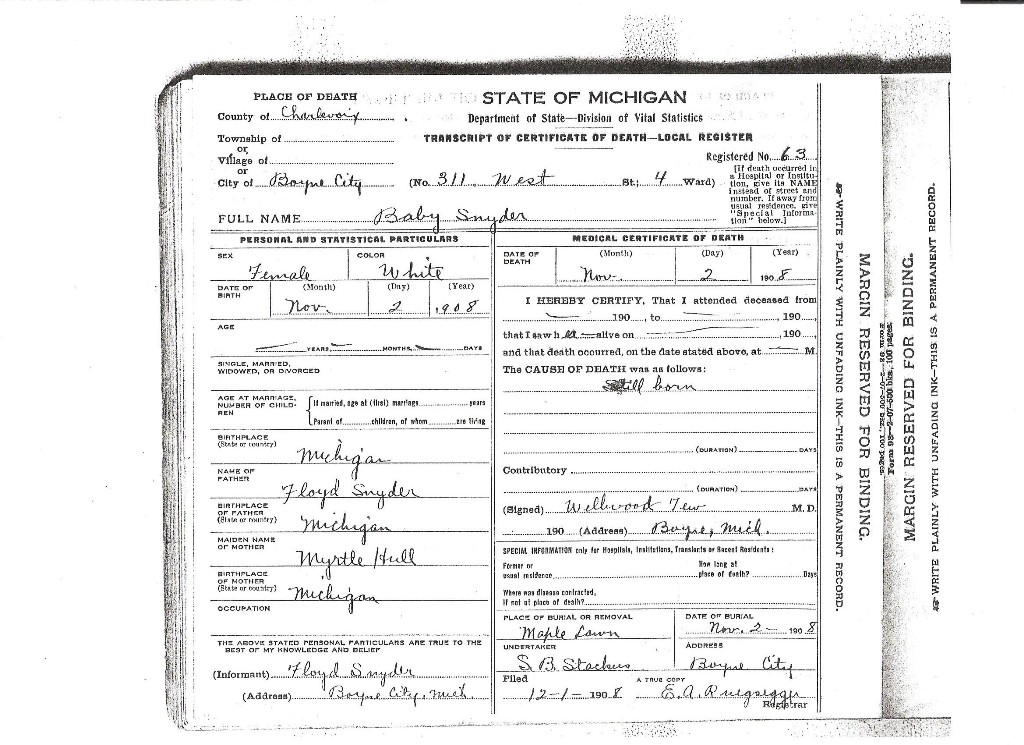 PLACE OF DEATH
STATE OF MICHIGAN
County of Charlevoix
Department of State—Division of Vital Statistics
Township of
or
Village of
or
TRANSCRIPT OF CERTIFICATE OF DEATH—LOCAL REGISTER
Registered No. 63
City of Boyne City (No. 311, West St.; 4 Ward)
[If death occurred in
a Hospital or Institu-
tion, give its NAME
instead of street and
number. If away from
usual residence, give
"Special Informa-
tion" below.]
FULL NAME Baby Snyder
PERSONAL AND STATISTICAL PARTICULARS
SEX
Female
COLOR
White
DATE OF
BIRTH
(Month) (Day) (Year)
Nov. 2, 1908
AGE
YEARS, MONTHS, DAYS
SINGLE, MARRIED,
WIDOWED, OR DIVORCED
AGE AT MARRIAGE,
NUMBER OF CHILD-
REN
If married, age at (first) marriage years
Parent of children, of whom are living
BIRTHPLACE
(State or country)
Michigan
NAME OF
FATHER
Floyd Snyder
BIRTHPLACE
OF FATHER
(State or country)
Michigan
MAIDEN NAME
OF MOTHER
Myrtle Hull
BIRTHPLACE
OF MOTHER
(State or country)
Michigan
OCCUPATION
THE ABOVE STATED PERSONAL PARTICULARS ARE TRUE TO THE
BEST OF MY KNOWLEDGE AND BELIEF
(Informant) Floyd Snyder
(Address) Boyne City, Mich
MEDICAL CERTIFICATE OF DEATH
DATE OF
DEATH
(Month) (Day) (Year)
Nov. 2 1908
I HEREBY CERTIFY, That I attended deceased from
190 , to , 190 ,
that I saw h alive on , 190 ,
and that death occurred, on the date stated above, at M
The CAUSE OF DEATH was as follows:
Still born
(DURATION) DAYS
Contributory
(DURATION) DAYS
(Signed) Wellwood Tew M.D.
190 (Address) Boyne, Mich.
SPECIAL INFORMATION only for Hospitals, Institutions, Transients or Recent Residents:
Former or
usual residence
How long at
place of death? Days
Where was disease contracted,
if not at place of death?
PLACE OF BURIAL OR REMOVAL
Maple Lawn
DATE OF BURIAL
Nov. 2 — 1908
UNDERTAKER
S. B. Stackus
ADDRESS
Boyne City
Filed
12-1-1908
A TRUE COPY
E. A. Ruegsegger
Registrar
WRITE PLAINLY WITH UNFADING INK—THIS IS A PERMANENT RECORD.
MARGIN RESERVED FOR BINDING.
Form 98—2-07-500 bks., 100 pages
MARGIN RESERVED FOR BINDING.
WRITE PLAINLY WITH UNFADING INK—THIS IS A PERMANENT RECORD.